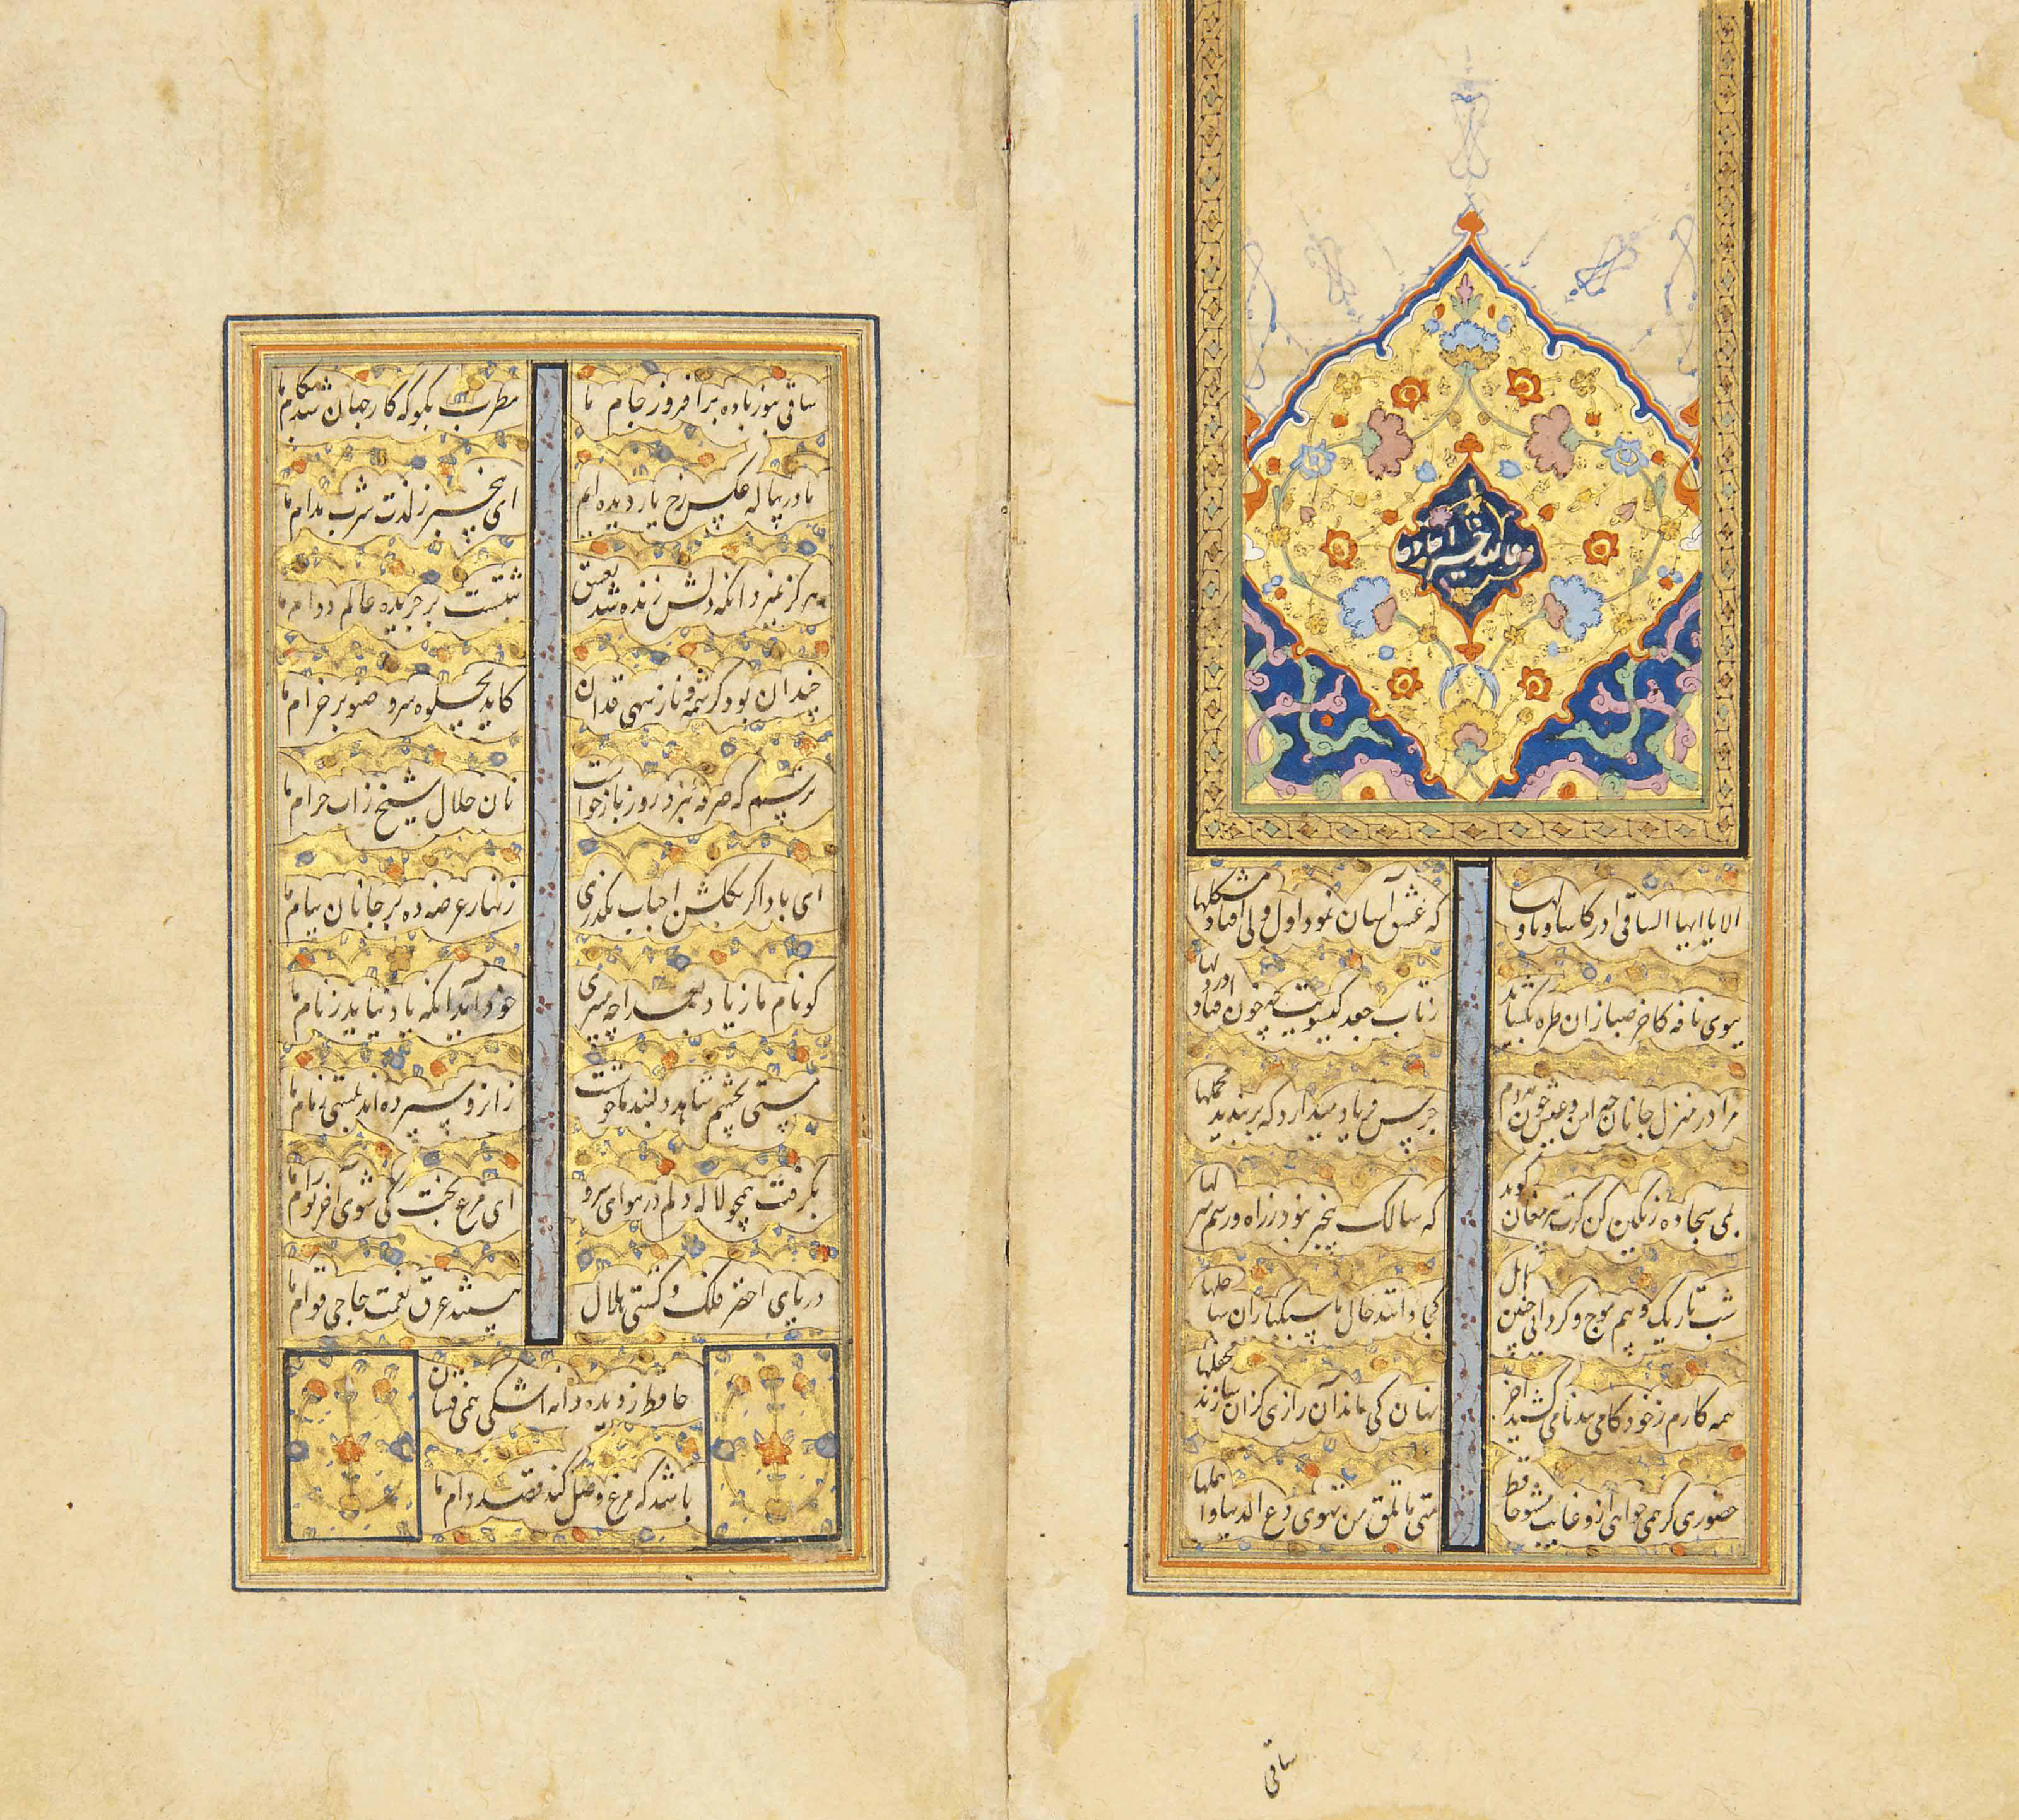 الا یا ایها الساقی ادر کاسا و ناولها
که عشق آسان نمود اول ولی افتاد مشکلها
ببوی نافه کاخر صبا زان طره بگشاید
ز تاب جعد گیسویت چه خون افتاد در دلها
مرا در منزل جانان چه امن و عیش چون هر دم
جرس فریاد میدارد که بربندید محملها
بمی سجاده رنگین کن گرت پیر مغان گوید
که سالک بیخبر نبود ز راه و رسم منزلها
شب تاریک و بیم موج و گردابی چنین هایل
کجا دانند حال ما سبکباران ساحلها
همه کارم ز خود کامی ببدنامی کشید آخر
نهان کی ماند آن رازی کزان سازند محفلها
حضوری گر همی خواهی ازو غایب مشو حافظ
متی ما تلق من تهوی دع الدنیا و اهملها
ساقی
ساقی بنور باده برافروز جام ما
مطرب بگو که کار جهان شد بکام ما
ما در پیاله عکس رخ یار دیده ایم
ای بیخبر ز لذت شرب مدام ما
هرگز نمیرد انکه دلش زنده شد بعشق
ثبتست بر جریده عالم دوام ما
چندان بود کرشمه و ناز سهی قدان
کاید بجلوه سرو صنوبر خرام ما
ترسم که صرفه نبرد روز بازخواست
نان حلال شیخ ز اب حرام ما
ای باد اگر بگلشن احباب بگذری
زنهار عرضه ده بر جانان پیام ما
گو نام ما ز یاد بعمدا چه میبری
خود آید انکه یاد نیاید ز نام ما
مستی بچشم شاهد دلبند ما خوشست
زانرو سپرده اند بمستی زمام ما
بگرفت همچو لاله دلم در هوای سرو
ای مرغ بخت کی شوی آخر تو رام ما
دریای اخضر فلک و کشتی هلال
هستند غرق نعمت حاجی قوام ما
حافظ ز دیده دانه اشکی همی فشان
باشد که مرغ وصل کند قصد دام ما